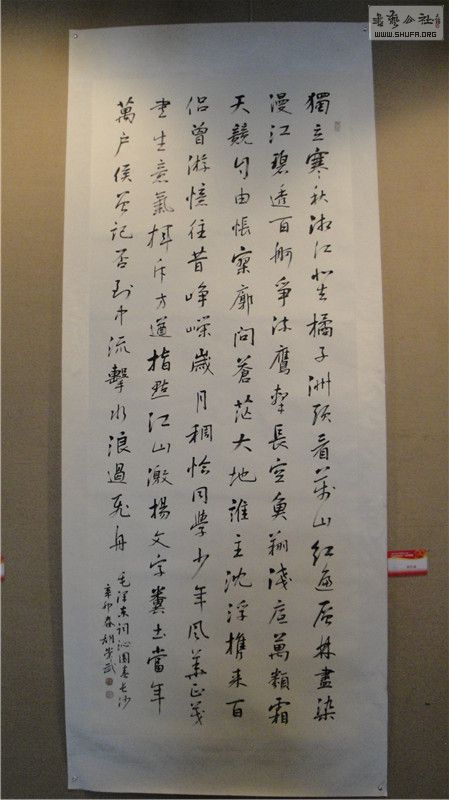 書藝公社
WWW.SHUFA.ORG
獨立寒秋湘江北去橘子洲頭看万山红遍层林盡染
漫江碧透百舸爭流鷹擊長空魚翔淺底萬類霜
天競自由悵寥廓問蒼茫大地誰主沈浮携来百
侣曾游憶往昔崢嶸歲月稠恰同學少年风华正茂
书生意氣挥斥方遒指點江山激揚文字糞土當年
萬户侯曾記否到中流擊水浪遏飛舟
毛澤东词沁园春长沙
辛卯春胡武